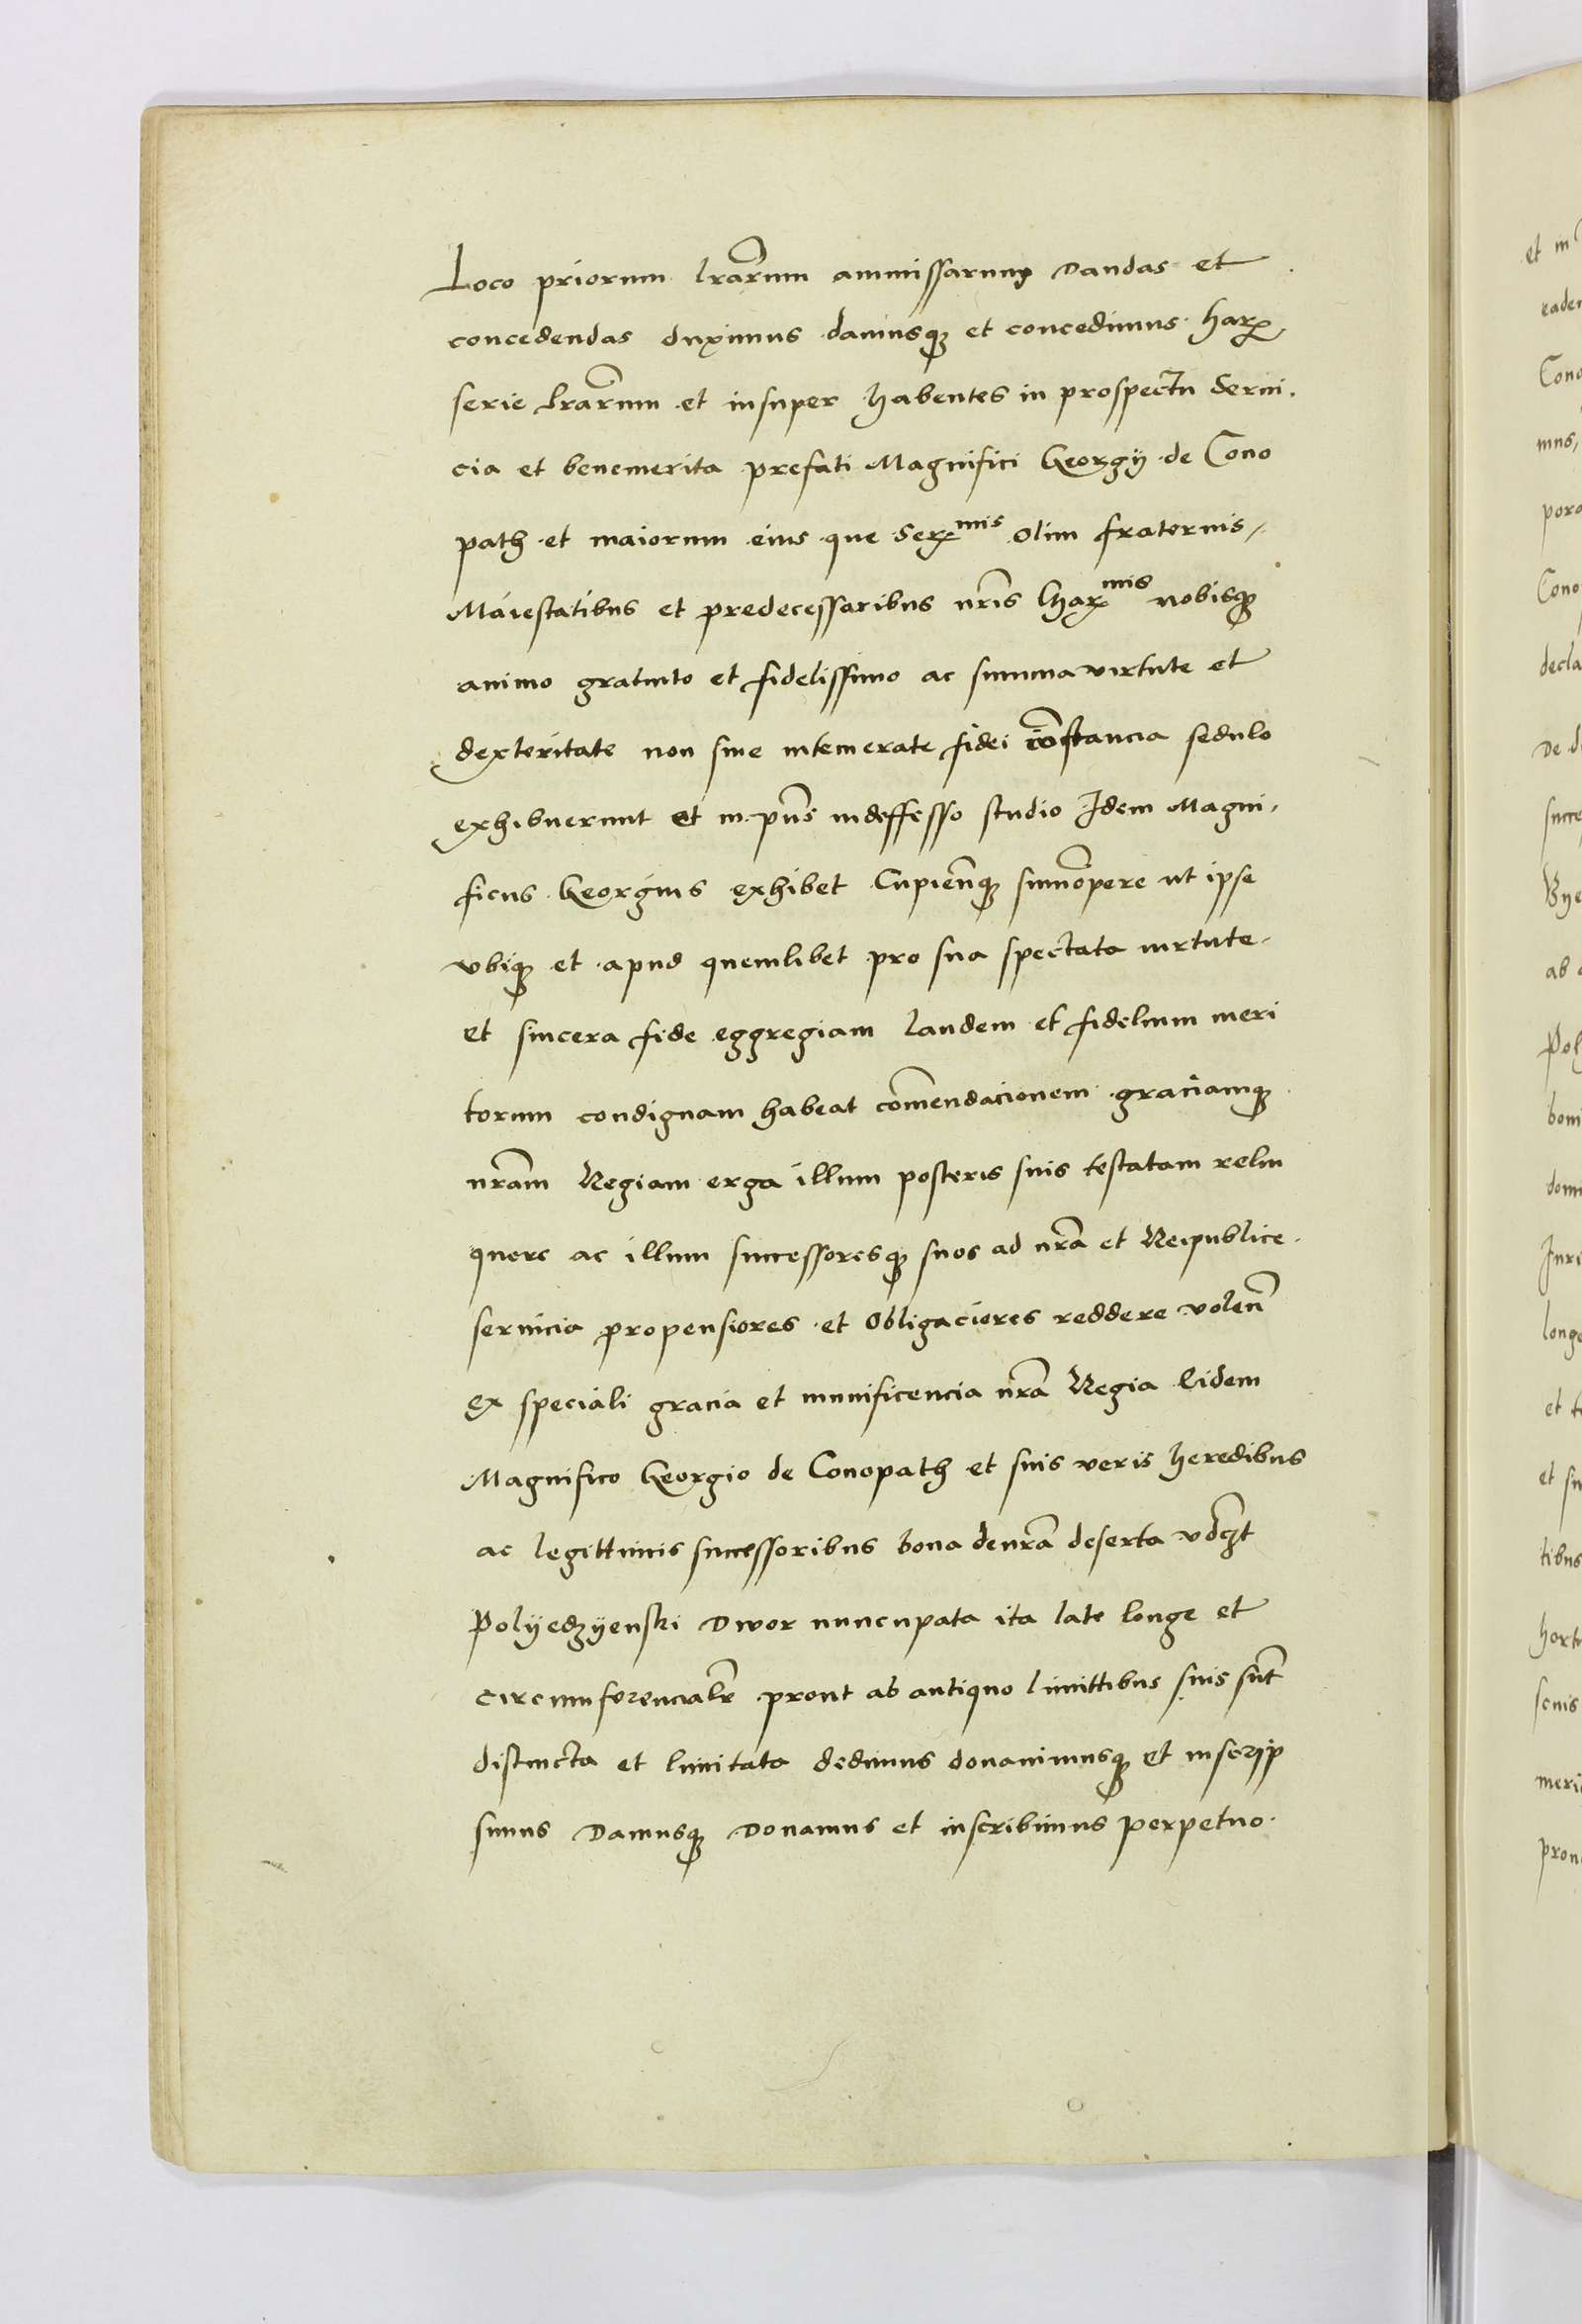 Loco priorum lrarum ammissarum dandas et
concedendas duximus damusq3 et concedimus har
serie lrarum et insuper habentes in prospectu Serui.
cia et benemerita prefati Magnifici Georgÿ de Cono
path et maiorum eius que Sermis olim fraternis
Maiestatibus et predecessoribus nris Charmis nobisq3
animo gratuito et fidelissimo ac summa virtute et
dexteritate non sine intemerate fidei constancia sedulo
exhibuerunt et in pns indeffesso studio Idem Magni
ficus Georgius exhibet Cupienq3 summopere ut ipse
vbiq3 et apud quemlibet pro sua spectata uirtute
et sincera fide eggregiam laudem et fidelium meri
torum condignam habeat comendacionem graciamq3
nram Regiam erga illum posteris suis testatam relin
quere ac illum successoresq3 suos ad nra et Reipublice
seruicia propensiores et obligaciores reddere volen
Ex speciali gracia et munificencia nra Regia Eidem
Magnifico Georgio de Conopath et suis veris heredibus
ac legittimis successoribus bona denra deserta vdczt
Polyedzÿenski Dwor nuncupata ita late longe et
circumferencialr prout ab antiquo limittibus suis sut
distincta et limitata dedimus donauimusq3 et inscrip
simus Damusq3 Donamus et inscribimus perpetuo
et in
Cono
mus,
Cono
decla
De d
succe
ab
boni
longe
et
et su
tibus